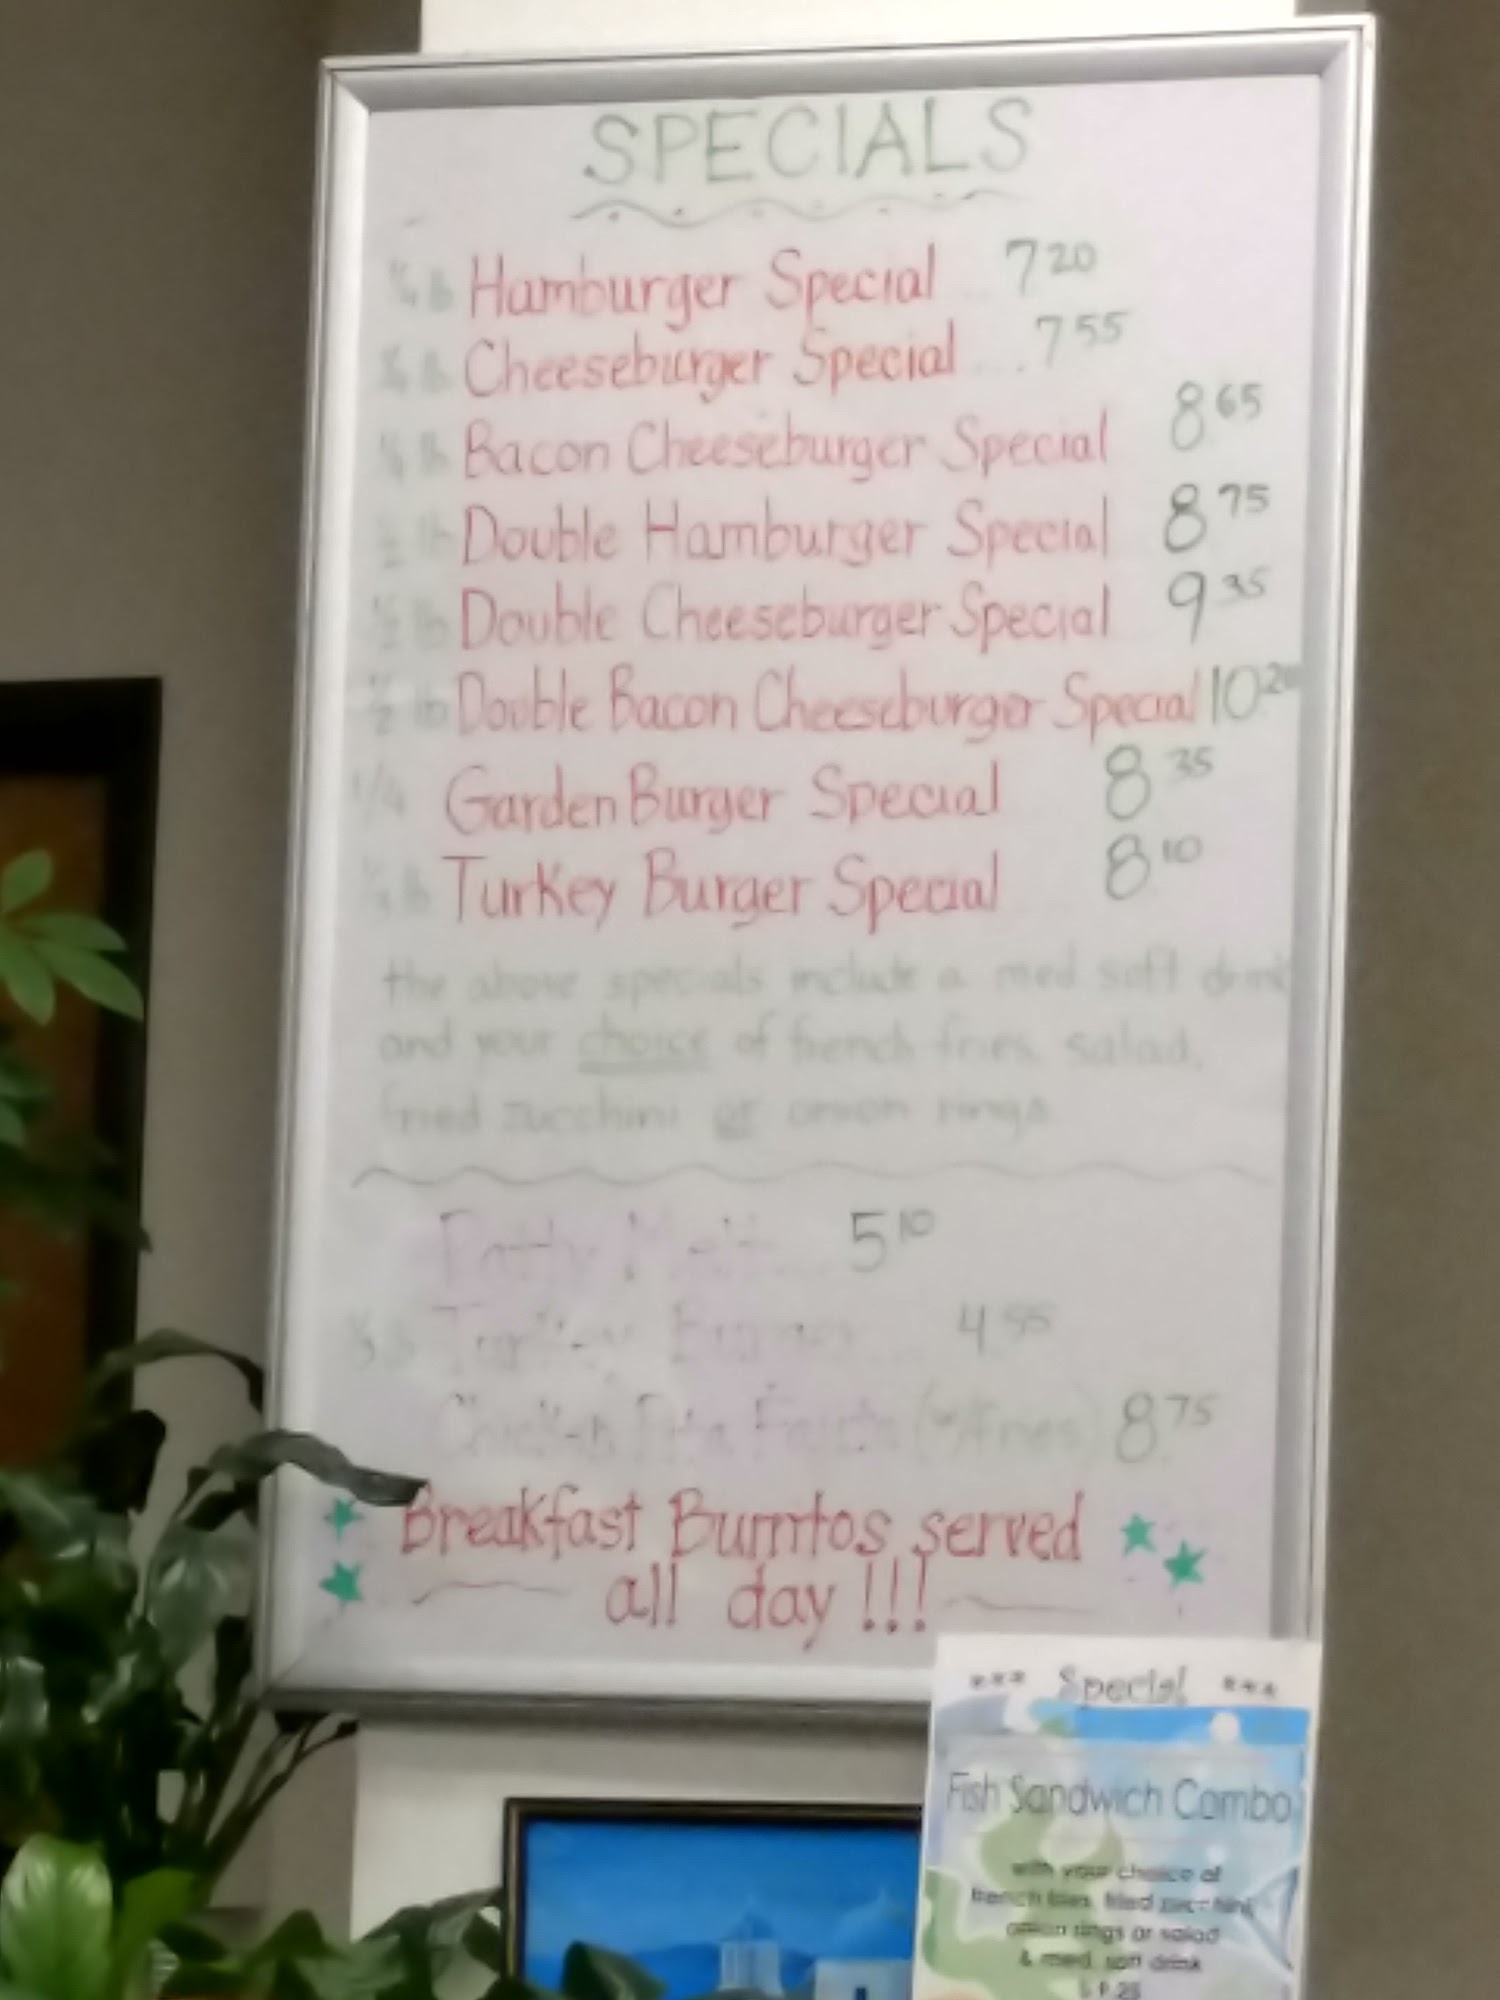 SPECIALS
1/4 lb Hamburger Special 7 20
1/4 lb Cheeseburger Special ... 7 55
1/4 lb Bacon Cheeseburger Special 8 65
1/2 lb Double Hamburger Special 8 75
1/2 lb Double Cheeseburger Special 9 35
1/2 lb Double Bacon Cheeseburger Special 10.20
1/4 GardenBurger Special 8 35
1/3 lb Turkey Burger Special 8 10
the above specials include a med soft drink
and your choice of french fries, salad,
fried zucchini or onion rings
Patty Melt ... 5 10
1/3 lb Turkey Burger ... 4 55
Chicken Pita Fajita (w/fries) 8 75
Breakfast Burritos served
all day !!!
*** Special ***
Fish Sandwich Combo
with your choice of
french fries, fried zucchini,
onion rings or salad
& med. soft drink
$ 9.25